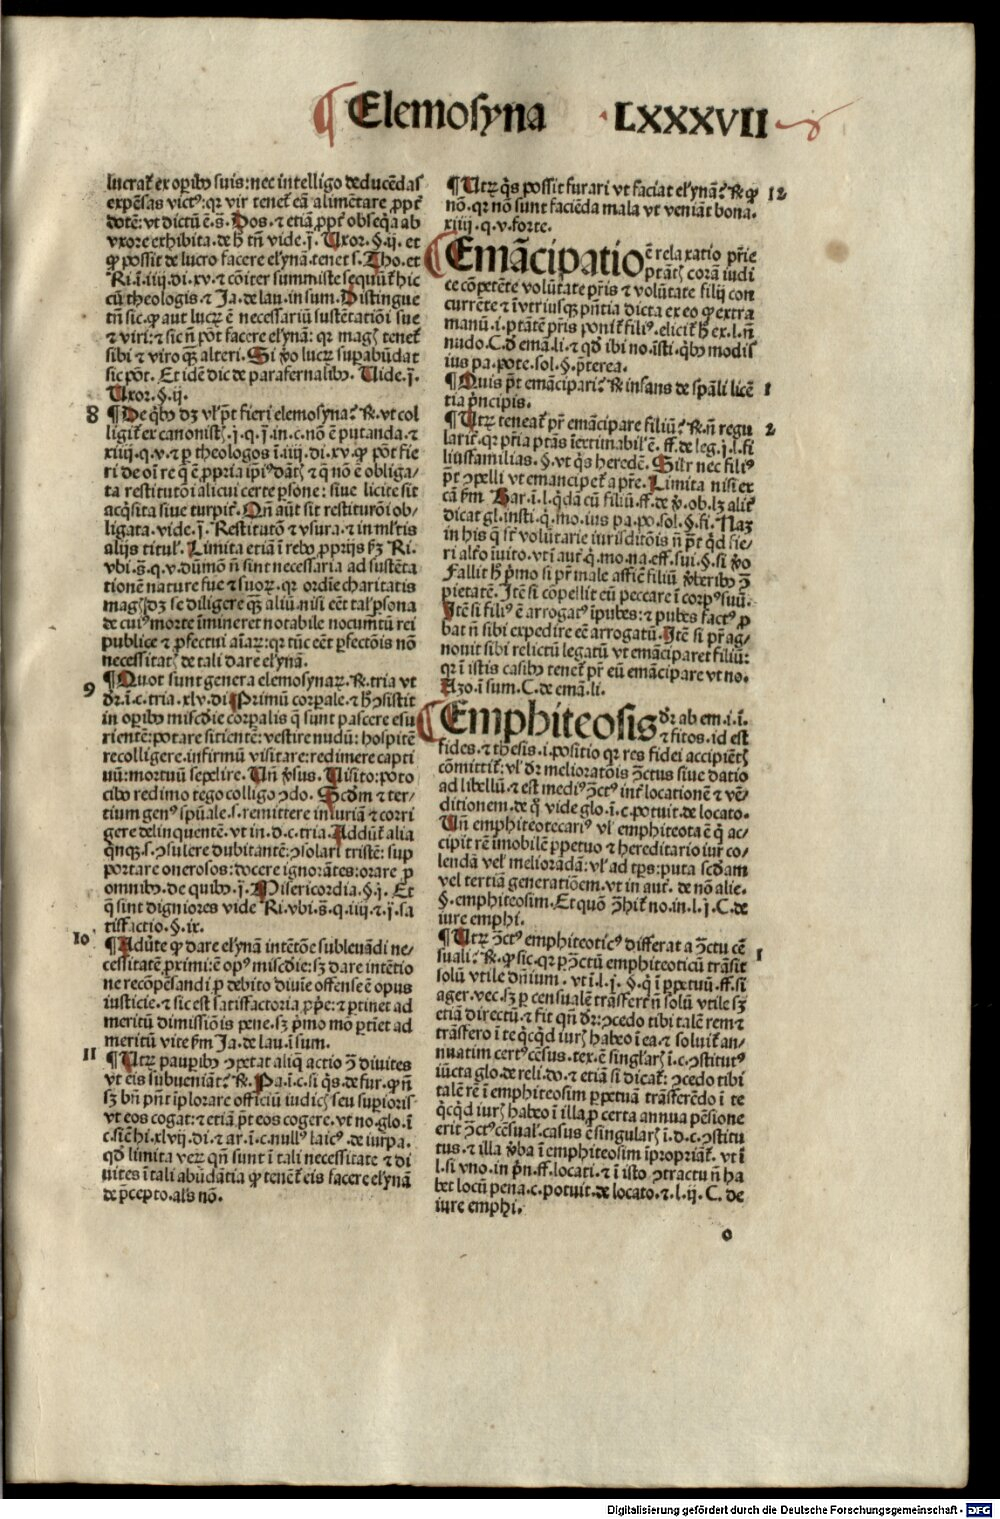 ¶ Elemosyna · LXXXVII
lucrat̃ ex oꝑibꝰ suis: nec intelligo deducẽdas
expẽsas victꝰ: qꝛ vir tenet̃ eã alimẽtare ꝓpt̃
dotẽ: vt dictũ ẽ.s̃. Dos. ⁊ etiã ꝓpt̃ obseq̃a ab
vxore exhibita. de h̃ tñ vide.j̃. Uxor.§.ij. et
ꝙ possit de lucro facere el̃ynã. tenet s. Tho. et
Ri.ĩ.iiij.di.xv.⁊ cõiter summiste sequũt̃ hic
cũ theologis.⁊ Ja. de lau. in sum. Distingue
tñ sic. ꝙ aut lucꝝ ẽ necessariũ sustẽtatiõi sue
⁊ viri: ⁊ sic ñ põt facere el̃ynã: qꝛ magꝭ tenet̃
sibi ⁊ viro qꝫ alteri. Si ṽo lucꝝ suꝑabũdat
sic põt. Et idẽ dic de parafernalibꝰ. Uide.j̃.
Uxor.§.ij.
8 ¶ De qͥbꝰ dꝫ vl̃ p̃t fieri elemosyna? R̃. vt col
ligit̃ ex canonistꝭ.j̃.q.j̃.in.c.nõ ẽ putanda.⁊
xiiij.q.v.⁊ ꝑ theologos ĩ.iiij.di.xv.ꝙ põt fie
ri de oĩ re q̃ ẽ ꝓpria ip̃iꝰ dãtꝭ ⁊ q̃ nõ ẽ obliga/
ta restitutõi alicui certe ꝑsone: siue licite sit
acq̃sita siue turpit̃. Qñ aũt sit restitutõi ob/
ligata. vide.j̃. Restitutõ ⁊ vsura.⁊ in ml̃tis
alijs titul̃. Limita etiã ĩ rebꝰ ꝓprijs ẜꝫ Ri.
vbi.s̃.q.v.dũmõ ñ sint necessaria ad sustẽta
tionẽ nature sue ⁊ suoꝝ. qꝛ ordĩe charitatis
magꝭ dꝫ se diligere qꝫ aliũ. nisi eẽt tal̃ ꝑsona
de cuiꝰ morte ĩmineret notabile nocumẽtũ rei
publice ⁊ ꝓfectui aĩaꝝ: qꝛ tũc eẽt ꝑfectõis nõ
necessitatꝭ de tali dare el̃ynã.
9 ¶ Quot sunt genera elemosynaꝝ. R̃. tria vt
dr̃.ĩ.c.tria.xlv.di. Primũ corꝑale.⁊ h̃ ↄ̃sistit
in oꝑibꝰ misc̃die corꝑalis q̃ sunt pascere esu
rientẽ: potare sitientẽ: vestire nudũ: hospitẽ
recolligere. infirmũ visitare: redimere capti
uũ: mortuũ sepelire. Uñ ṽsus. Uisito: poto
cibo redimo tego colligo ↄdo. Scd̃m ⁊ ter/
tium genꝰ spũale.s. remittere iniuriã ⁊ corri
gere delinquentẽ. vt in.d.c.tria. Addũt̃ alia
qͥnqꝫ.s.ↄsulere dubitantẽ: ↄsolari tristẽ: sup
portare onerosos: docere ignorãtes: orare ꝓ
omnibꝰ. de quibꝰ.j̃. Misericordia.§.j̃. Et
q̃ sint digniores vide Ri. vbi.s̃.q.iiij.⁊.j̃.sa
tisfactio.§.ix.
10 ¶ Adũte ꝙ dare el̃ynã intẽtõe subleuãdi ne/
cessitatẽ ꝓximi: ẽ opꝰ misc̃die: sꝫ dare intẽtio
ne recõpẽsandi ꝓ debito diuĩe offense ẽ opus
iusticie.⁊ sic est satisfactoria ꝓp̃e: ⁊ ꝑtinet ad
meritũ dimissiõis pene. sꝫ pͥmo mõ ꝑtĩet ad
meritũ vite ẜm Ja. de lau. ĩ sum.
11 ¶ Utꝝ pauꝑibꝰ ↄpetat aliq̃ actio ↄ̃ diuites
vt eis subueniãt? R̃. Pa.ĩ.c.si qͥs. de fur. ꝙ ñ
sꝫ bñ pñt ĩplorare officiũ iudicꝭ seu suꝑioris
vt eos cogat: ⁊ etiã p̃t eos cogere. vt no. glo.ĩ
c.siẽ hi.xlvij.di.⁊ ar.ĩ.c.nullꝰ laicꝰ. de iurpa.
qd̃ limita veꝝ qñ sunt ĩ tali necessitate ⁊ di
uites ĩ tali abũdãtia ꝙ tenẽt̃ eis facere el̃ynã
de p̃cepto. al̃s nõ.
¶ Utꝝ qͥs possit furari vt faciat el̃ynã? R̃. ꝙ 12
nõ. qꝛ nõ sunt faciẽda mala vt veniãt bona.
xiiij.q.v. forte.
Emãcipatio ẽ relaxatio pr̃ie
ptãtꝭ corã iudi
ce cõpetẽte volũtate pr̃is ⁊ volũtate filij con
currẽte ⁊ ĩ vtriusqꝫ pñtia dicta ex eo ꝙ extra
manũ.i.ptãtẽ pr̃is ponit̃ filiꝰ. elicit̃ h̃ ex.l.ñ
nudo. C. d̃ emã.li.⁊ qd̃ ibi no. ĩsti. qͥbꝰ modis
ius pa. pote. sol.§.p̃terea.
¶ Quis p̃t emãcipari? R̃ insans de sp̃ali licẽ 1
tia pͥncipis.
¶ Utꝝ teneat̃ pr̃ emãcipare filiũ? R̃. ñ regu 2
larit̃. qꝛ pr̃ia ptãs ĩextimabil̃ ẽ. ff. de leg.j̃.l.fi
liusfamilias.§.vt qͥs heredẽ. Silr̃ nec filiꝰ
p̃t ↄpelli vt emancipet̃ a pr̃e. Limita nisi ex
cã ẜm Bar.ĩ.l.qͥdã cũ filiũ. ff. de ṽ.ob. lꝫ alit̃
dicat gl. insti. qͥ.mo. ius pa. po. sol.§.fi. Naꝫ
in his q̃ st̃ volũtarie iurisditõis ñ p̃t qͥd fie/
ri alt̃o ĩuito. vt ĩ aut̃. q̃.mo. na. eff. sui.§.si ṽo
Fallit h̃ pͥmo si pr̃ male afficẽ filiũ ṽberibꝰ ↄ̃
pietatẽ. Jtẽ si cõpellit eũ peccare ĩ corpꝰ suũ.
Jtẽ si filiꝰ ẽ arrogatꝰ ĩpubes: ⁊ pubes factꝰ ꝓ
bat ñ sibi expedire eẽ arrogatũ. Jtẽ si pr̃ ag/
nouit sibi relictũ legatũ vt emãciparet filiũ:
qꝛ ĩ istis casibꝰ tenet̃ pr̃ eũ emãcipare vt no.
Azo. ĩ sum. C. de emã.li.
Emphiteosis dr̃ ab em.i.ĩ.
⁊ fitos. id est
fides.⁊ thesis.i.positio qꝛ res fidei accipiẽtꝭ
cõmittit̃: vl̃ dr̃ melioratõis ↄ̃ctus siue datio
ad libellũ.⁊ est mediꝰ ↄ̃ctꝰ int̃ locationẽ ⁊ vẽ/
ditionem. de q̃ vide glo.ĩ.c.potuit. de locato.
Uñ emphiteotecariꝰ vl̃ emphiteota ẽ q̃ ac/
cipit rẽ imobilẽ ꝑpetuo ⁊ hereditario iur̃ co/
lendã vel̃ melioradã: vl̃ ad tp̃s: puta scd̃am
vel tertiã generatiõem. vt in aut̃. de nõ alie.
§. emphiteosim. Et quõ ↄ̃hit̃ no. in.l.j̃. C. de
iure emphi.
¶ Utꝝ ↄ̃ctꝰ emphiteoticꝰ differat a ↄ̃ctu cẽ 1
suali? R̃. ꝙ sic. qꝛ ꝑ ↄ̃ctũ emphiteoticũ trãsit
solũ vtile dñium. vt ĩ.l.j̃.§.q̃ ĩ ꝑpetuũ. ff. si
ager. vec. sꝫ ꝑ censualẽ trãsfert̃ ñ solũ vtile sꝫ
etiã directũ. ⁊ fit qñ dr̃: ↄcedo tibi talẽ rem ⁊
trãsfero ĩ te qͥcqͥd iurꝭ habeo ĩ ea.⁊ soluit̃ an/
nuatim certꝰ cẽsus. tex. ẽ singl̃arꝭ ĩ.c.ↄstitutꝰ
iũcta glo. de reli. do.⁊ etiã si dicat̃: ↄcedo tibi
talẽ rẽ ĩ emphiteosim ꝑpetuã trãsferẽdo ĩ te
qͥcqͥd iurꝭ habeo ĩ illa ꝓ certa annua pẽsione
erit ↄ̃ctꝰ cẽsual̃. casus ẽ singularꝭ ĩ.d.c.ↄstitu
tus.⁊ illa ṽba ĩ emphiteosim ĩpropriãt̃. vt ĩ
l.si vno. in pͥn. ff. locati.⁊ ĩ isto ↄtractu ñ ha
bet locũ pena.c.potuit. de locato.⁊.l.ij. C. de
iure emphi.
o
Digitalisierung gefördert durch die Deutsche Forschungsgemeinschaft - DFG